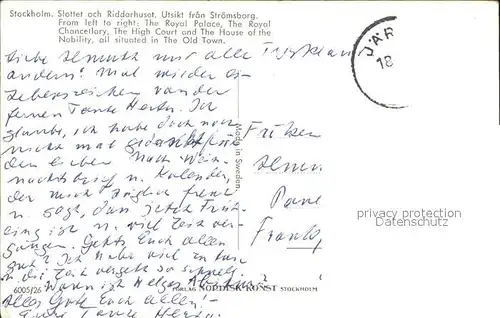 Stockholm. Slottet och Riddarhuset. Utsikt från Strömsborg.
From left to right: The Royal Palace, The Royal
Chancellory, The High Court and The House of the
Nobility, all situated in The Old Town.
JÄR
18
Liebe und alle
anderen! Mal wieder ein
Lebenszeichen von der
fernen Tante Herta. Ich
glaube, ich habe doch noch
nicht mal gedankt für
den lieben Nach Weih-
nachtsbrief u. Kalender,
der mich freut
u. sagt, dass jetzt Früh-
ling ist u. viel Zeit ver-
gangen. Gehts Euch allen
gut? Ich habe viel zu tun
u. die Zeit vergeht so schnell.
Wann ist Helgas
Alles Gute Euch allen!-
Eure Tante Herta.
Made in Sweden
Pane
Frankf
privacy protection
Datenschutz
6005/26
FÖRLAG NORDISK KONST STOCKHOLM